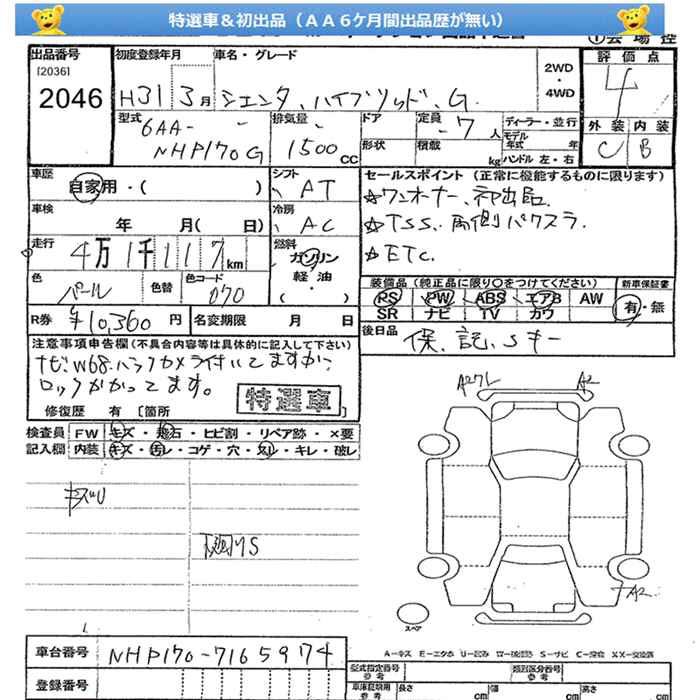 特選車＆初出品（ＡＡ６ケ月間出品歴が無い）
出品番号
[2036]
2046
初度登録年月
H31 3月
車名・グレード
シエンタ ハイブリッド G
2WD
・
4WD
評価点
4
外装 内装
C B
型式
6AA-
NHP170G
排気量
1500 CC
ドア
形状
定員
7人
積載
kg
ディーラー・並行
モデル
年式 年
ハンドル 左・右
車歴
自家用・( )
車検
年 月( 日)
走行
4万1千117km
色
パール
色替
色コード
070
シフト
AT
冷房
AC
燃料
ガソリン
軽・油
( )
セールスポイント（正常に機能するものに限ります）
☆ワンオーナー、初出品
☆TSS、両側パワスラ
☆ETC
装備品（純正品に限り○をつけてください）
PS PW ABS エアB AW
SR ナビ TV カワ
新車保証書
有・無
R券 ¥10,360円
名変期限 月 日
後日品
保、記、Sキー
注意事項申告欄(不具合内容等は具体的に記入して下さい)
ナビ:W68、バックカメラ付いてますが、
ロックかかってます。
修復歴 有 [箇所
特選車
検査員
記入欄
FW キズ・飛石・ヒビ割・リペア跡・×要
内装 キズ・汚レ・コゲ・穴・スレ・キレ・破レ
キズU
凹US
A2
A2
スペア
A－キズ E－エクボ U－凹み W－補修跡 S－サビ C－腐食 XX－交換済
車台番号
NHP170-7165974
登録番号
型式指定番号
類別区分番号
車庫証明用
参考
長さ
cm
幅
参考
cm
高さ
参考
cm